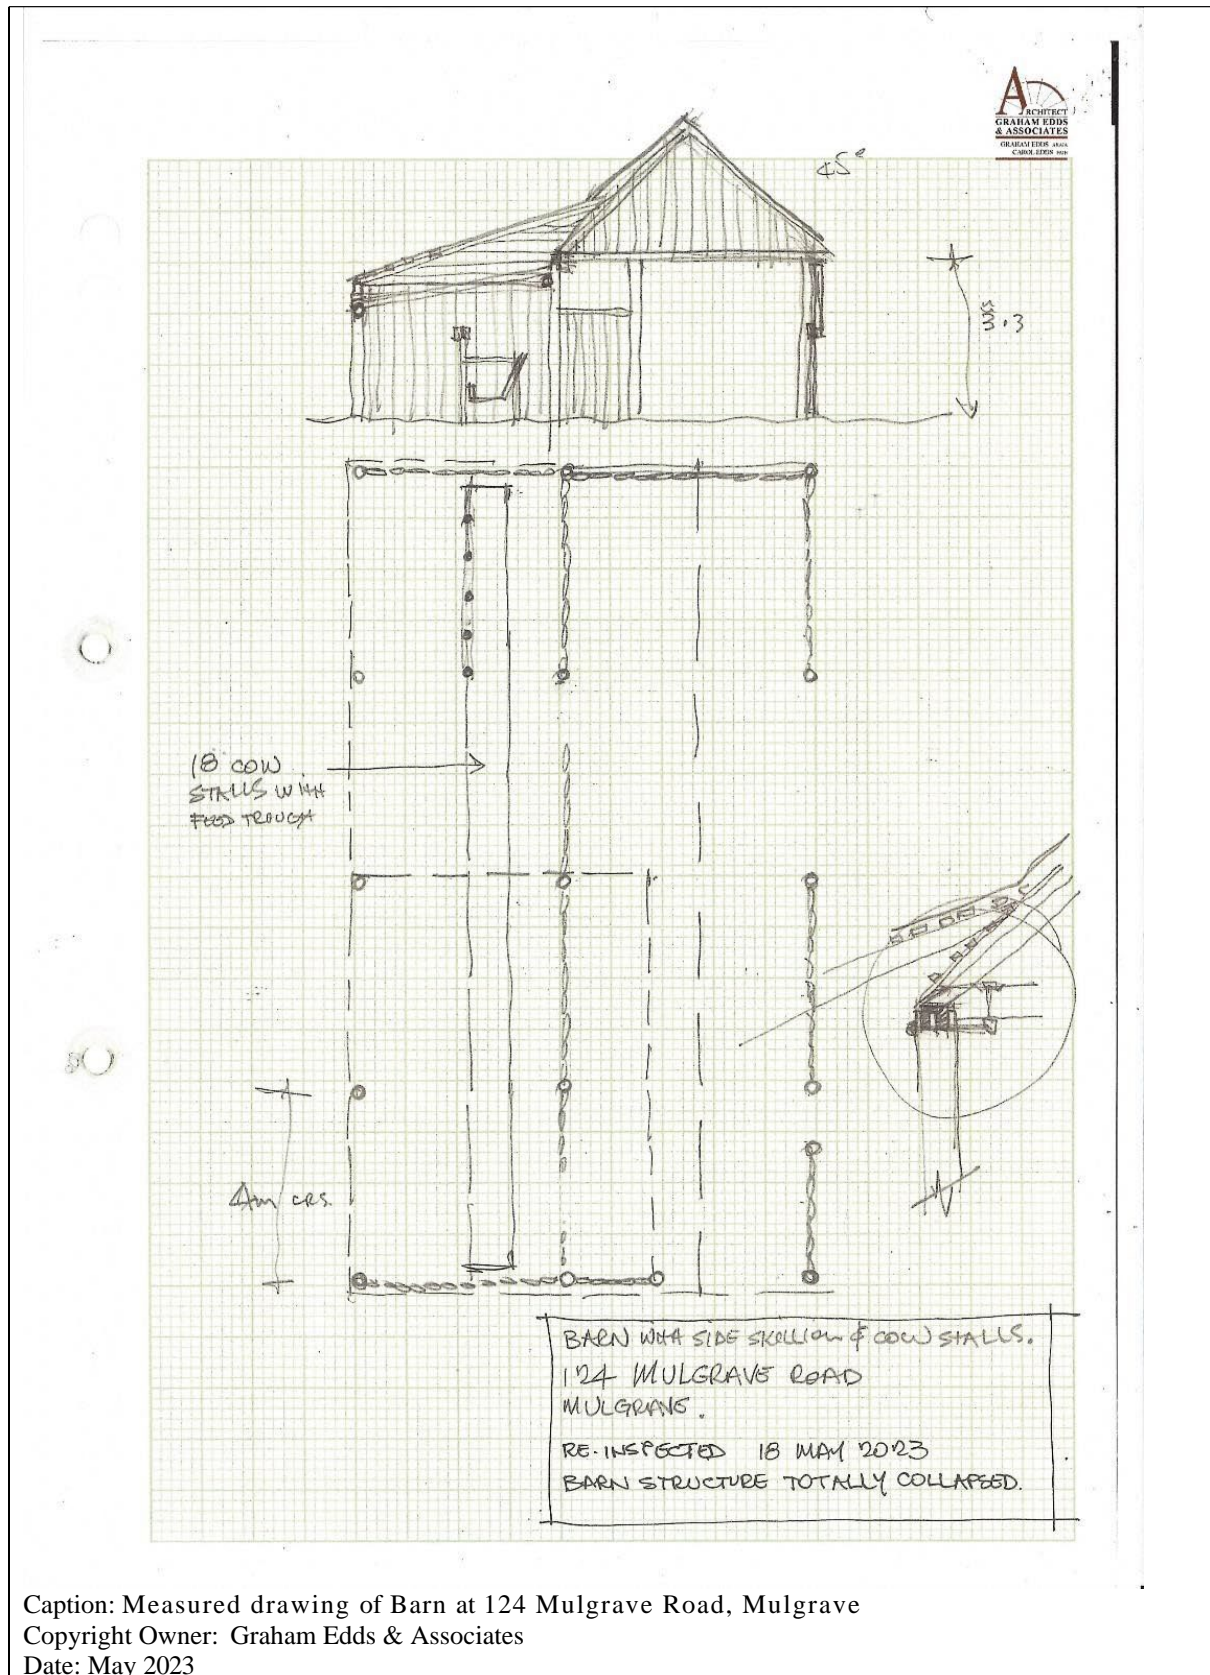 ARCHITECT
GRAHAM EDDS
& ASSOCIATES
GRAHAM EDDS
CAROL EDDS
45°
3.3
18 COW
STALLS WITH
FEED TROUGH
4m CRS.
BARN WITH SIDE SKILLION & COW STALLS.
124 MULGRAVE ROAD
MULGRAVE.
RE-INSPECTED 18 MAY 2023
BARN STRUCTURE TOTALLY COLLAPSED.
Caption: Measured drawing of Barn at 124 Mulgrave Road, Mulgrave
Copyright Owner: Graham Edds & Associates
Date: May 2023